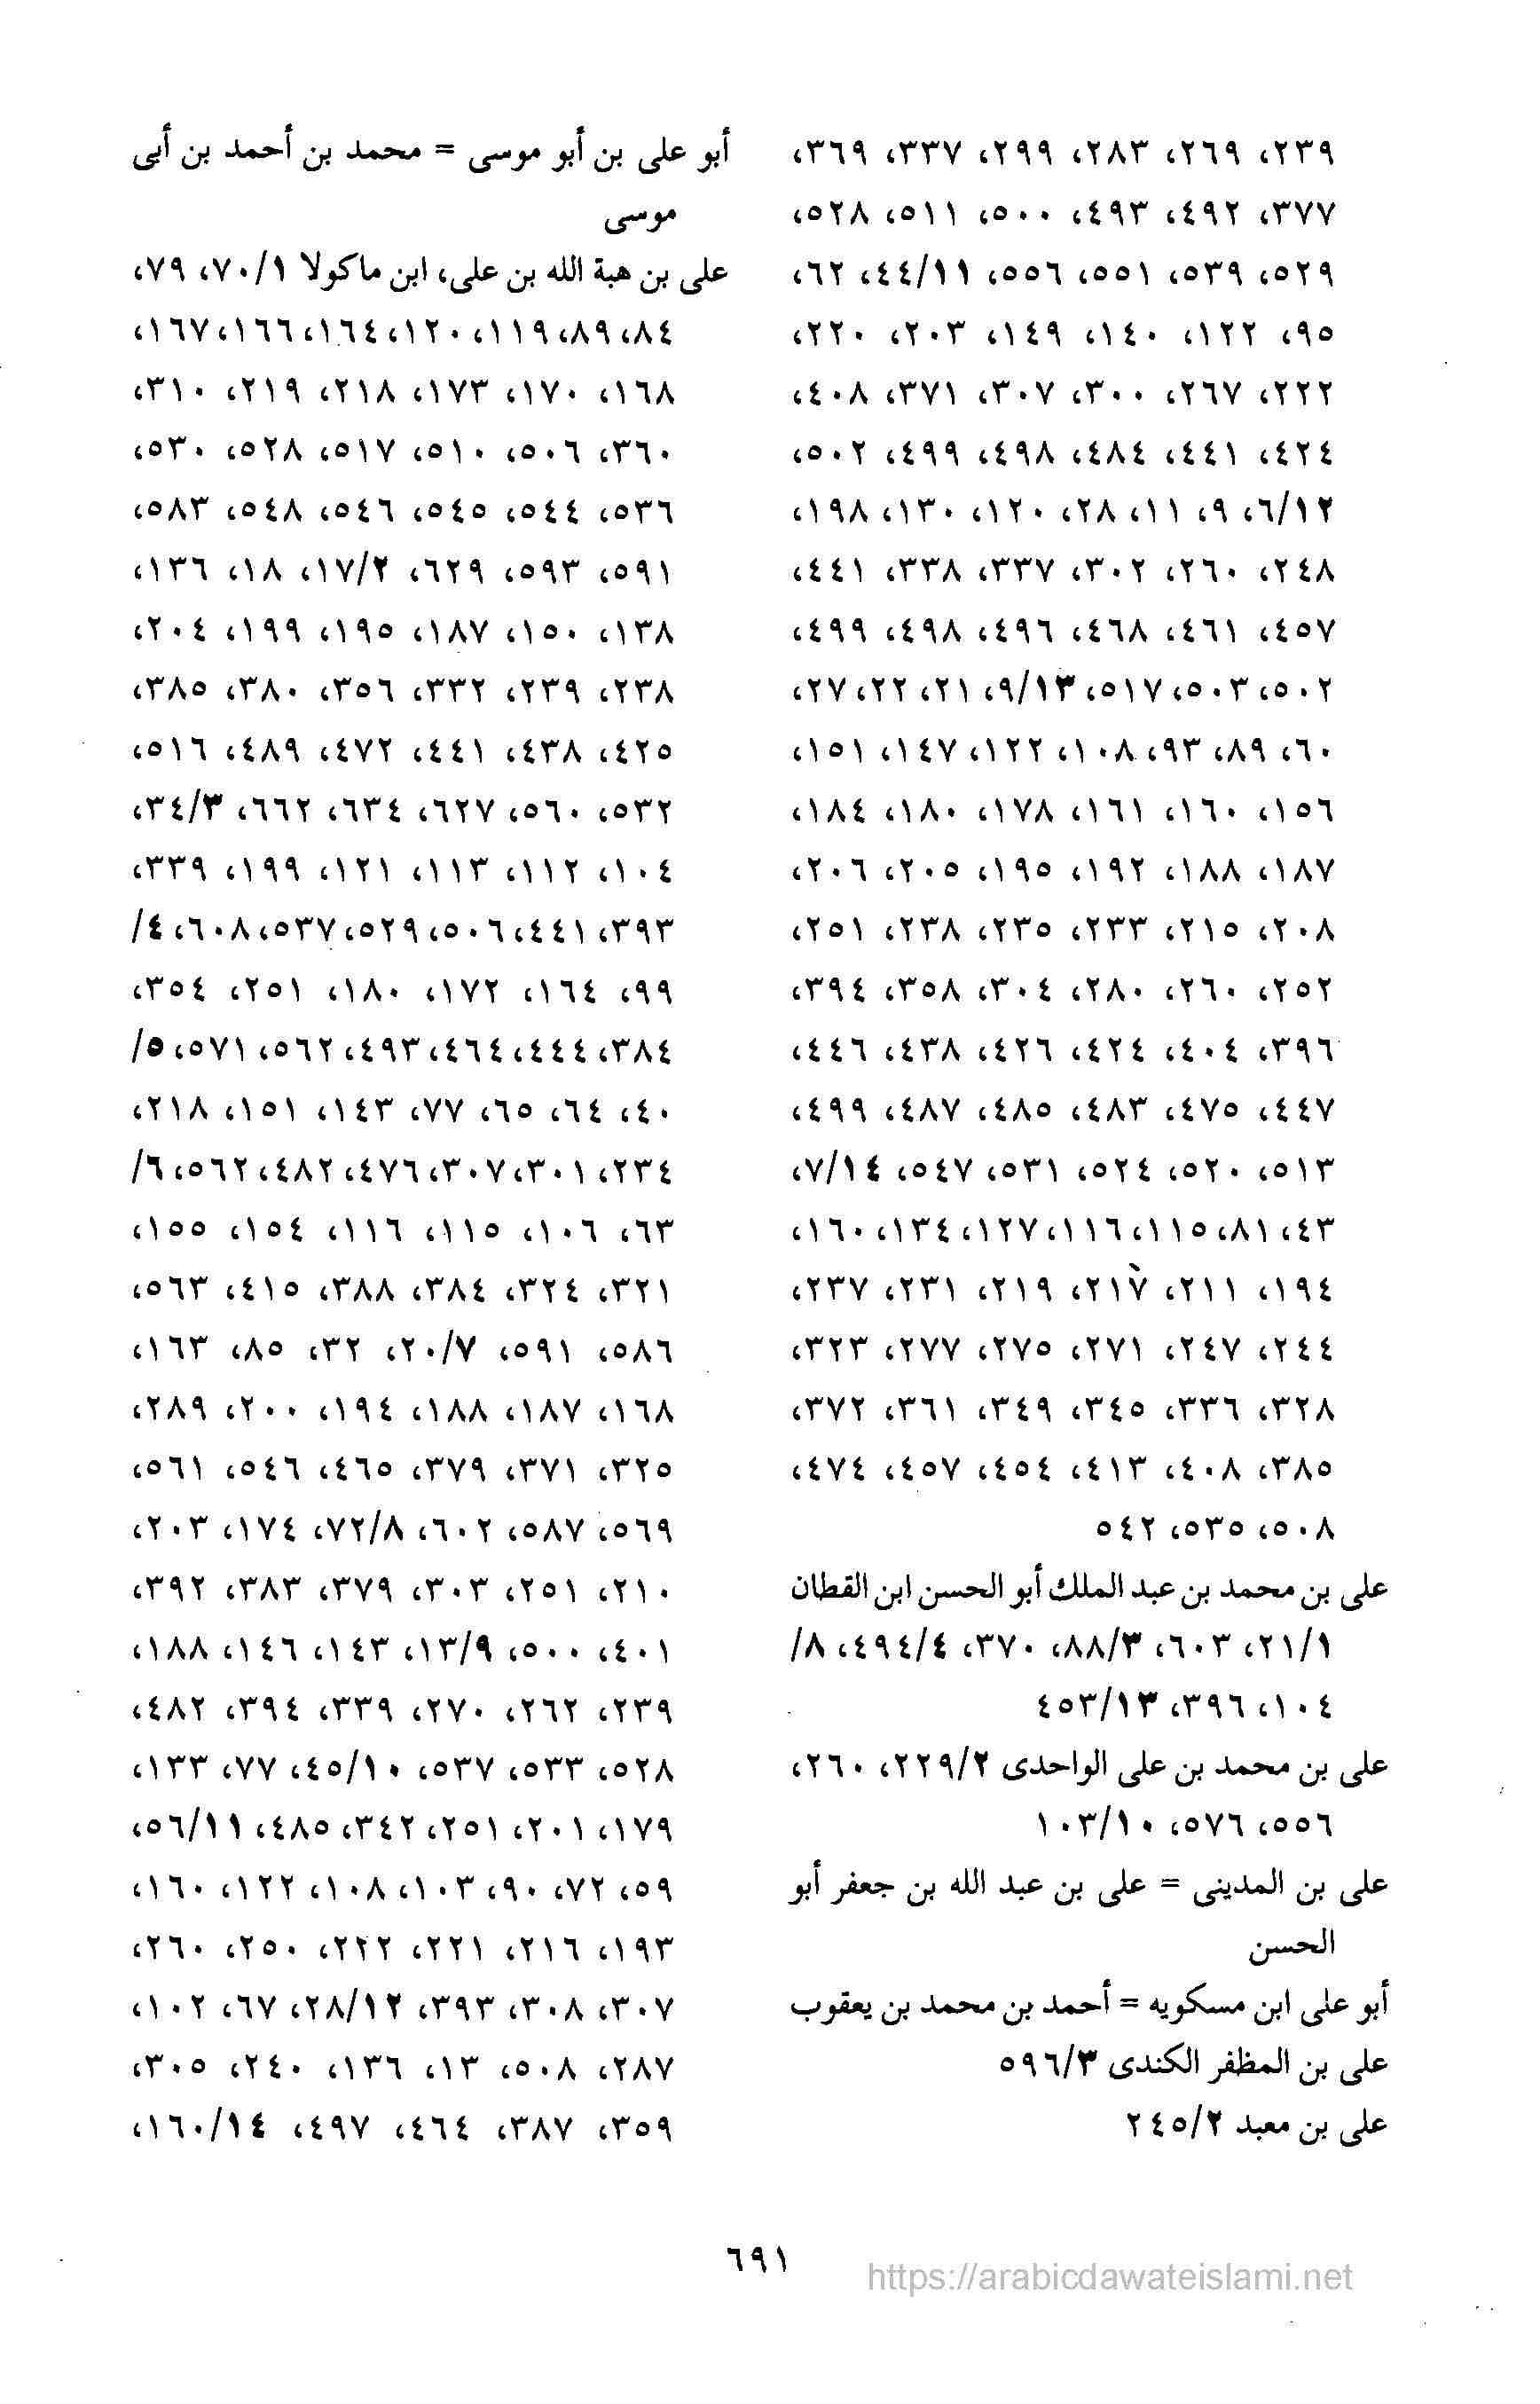 ٢٣٩، ٢٦٩، ٢٨٣، ٢٩٩، ٣٣٧، ٣٦٩،
٣٧٧، ٤٩٢، ٤٩٣، ٥٠٠، ٥١١، ٥٢٨،
٥٢٩، ٥٣٩، ٥٥١، ٥٥٦، ٤٤/١١، ٦٢،
٩٥، ١٢٢، ١٤٠، ١٤٩، ٢٠٣، ٢٢٠،
٢٢٢، ٢٦٧، ٣٠٠، ٣٠٧، ٣٧١، ٤٠٨،
٤٢٤، ٤٤١، ٤٨٤، ٤٩٨، ٤٩٩، ٥٠٢،
٦/١٢، ٩، ١١، ٢٨، ١٢٠، ١٣٠، ١٩٨،
٢٤٨، ٢٦٠، ٣٠٢، ٣٣٧، ٣٣٨، ٤٤١،
٤٥٧، ٤٦١، ٤٦٨، ٤٩٦، ٤٩٨، ٤٩٩،
٥٠٢، ٥٠٣، ٥١٧، ٩/١٣، ٢١، ٢٢، ٢٧،
٦٠، ٨٩، ٩٣، ١٠٨، ١٢٢، ١٤٧، ١٥١،
١٥٦، ١٦٠، ١٦١، ١٧٨، ١٨٠، ١٨٤،
١٨٧، ١٨٨، ١٩٢، ١٩٥، ٢٠٥، ٢٠٦،
٢٠٨، ٢١٥، ٢٣٣، ٢٣٥، ٢٣٨، ٢٥١،
٢٥٢، ٢٦٠، ٢٨٠، ٣٠٤، ٣٥٨، ٣٩٤،
٣٩٦، ٤٠٤، ٤٢٤، ٤٢٦، ٤٣٨، ٤٤٦،
٤٤٧، ٤٧٥، ٤٨٣، ٤٨٥، ٤٨٧، ٤٩٩،
٥١٣، ٥٢٠، ٥٢٤، ٥٣١، ٥٤٧، ٧/١٤،
٤٣، ٨١، ١١٥، ١١٦، ١٢٧، ١٣٤، ١٦٠،
١٩٤، ٢١١، ٢١٧، ٢١٩، ٢٣١، ٢٣٧،
٢٤٤، ٢٤٧، ٢٧١، ٢٧٥، ٢٧٧، ٣٢٣،
٣٢٨، ٣٣٦، ٣٤٥، ٣٤٩، ٣٦١، ٣٧٢،
٣٨٥، ٤٠٨، ٤١٣، ٤٥٤، ٤٥٧، ٤٧٤،
٥٠٨، ٥٣٥، ٥٤٢
على بن محمد بن عبد الملك أبو الحسن ابن القطان
٢١/١، ٦٠٣، ٨٨/٣، ٣٧٠، ٤٩٤/٤، ٨/
١٠٤، ٣٩٦، ٤٥٣/١٣
على بن محمد بن على الواحدى ٢٢٩/٢، ٢٦٠،
٥٥٦، ٥٧٦، ١٠٣/١٠
على بن المدينى = على بن عبد الله بن جعفر أبو
الحسن
أبو على ابن مسكويه = أحمد بن محمد بن يعقوب
على بن المظفر الكندى ٥٩٦/٣
على بن معبد ٢٤٥/٢
أبو على بن أبو موسى = محمد بن أحمد بن أبى
موسى
على بن هبة الله بن على، ابن ماكولا ٧٠/١، ٧٩،
٨٤، ٨٩، ١١٩، ١٢٠، ١٦٤، ١٦٦، ١٦٧،
١٦٨، ١٧٠، ١٧٣، ٢١٨، ٢١٩، ٣١٠،
٣٦٠، ٥٠٦، ٥١٠، ٥١٧، ٥٢٨، ٥٣٠،
٥٣٦، ٥٤٤، ٥٤٥، ٥٤٦، ٥٤٨، ٥٨٣،
٥٩١، ٥٩٣، ٦٢٩، ١٧/٢، ١٨، ١٣٦،
١٣٨، ١٥٠، ١٨٧، ١٩٥، ١٩٩، ٢٠٤،
٢٣٨، ٢٣٩، ٣٣٢، ٣٥٦، ٣٨٠، ٣٨٥،
٤٢٥، ٤٣٨، ٤٤١، ٤٧٢، ٤٨٩، ٥١٦،
٥٣٢، ٥٦٠، ٦٢٧، ٦٣٤، ٦٦٢، ٣٤/٣،
١٠٤، ١١٢، ١١٣، ١٢١، ١٩٩، ٣٣٩،
٣٩٣، ٤٤١، ٥٠٦، ٥٢٩، ٥٣٧، ٦٠٨، ٤/
٩٩، ١٦٤، ١٧٢، ١٨٠، ٢٥١، ٣٥٤،
٣٨٤، ٤٤٤، ٤٦٤، ٤٩٣، ٥٦٢، ٥٧١، ٥/
٤٠، ٦٤، ٦٥، ٧٧، ١٤٣، ١٥١، ٢١٨،
٢٣٤، ٣٠١، ٣٠٧، ٤٧٦، ٤٨٢، ٥٦٢، ٦/
٦٣، ١٠٦، ١١٥، ١١٦، ١٥٤، ١٥٥،
٣٢١، ٣٢٤، ٣٨٤، ٣٨٨، ٤١٥، ٥٦٣،
٥٨٦، ٥٩١، ٢٠/٧، ٣٢، ٨٥، ١٦٣،
١٦٨، ١٨٧، ١٨٨، ١٩٤، ٢٠٠، ٢٨٩،
٣٢٥، ٣٧١، ٣٧٩، ٤٦٥، ٥٤٦، ٥٦١،
٥٦٩، ٥٨٧، ٦٠٢، ٧٢/٨، ١٧٤، ٢٠٣،
٢١٠، ٢٥١، ٣٠٣، ٣٧٩، ٣٨٣، ٣٩٢،
٤٠١، ٥٠٠، ١٣/٩، ١٤٣، ١٤٦، ١٨٨،
٢٣٩، ٢٦٢، ٢٧٠، ٣٣٩، ٣٩٤، ٤٨٢،
٥٢٨، ٥٣٣، ٥٣٧، ٤٥/١٠، ٧٧، ١٣٣،
١٧٩، ٢٠١، ٢٥١، ٣٤٢، ٤٨٥، ٥٦/١١،
٥٩، ٧٢، ٩٠، ١٠٣، ١٠٨، ١٢٢، ١٦٠،
١٩٣، ٢١٦، ٢٢١، ٢٢٢، ٢٥٠، ٢٦٠،
٣٠٧، ٣٠٨، ٣٩٣، ٢٨/١٢، ٦٧، ١٠٢،
٢٨٧، ٥٠٨، ١٣، ١٣٦، ٢٤٠، ٣٠٥،
٣٥٩، ٣٨٧، ٤٦٤، ٤٩٧، ١٦٠/١٤،
٦٩١
https://arabicdawateislami.net